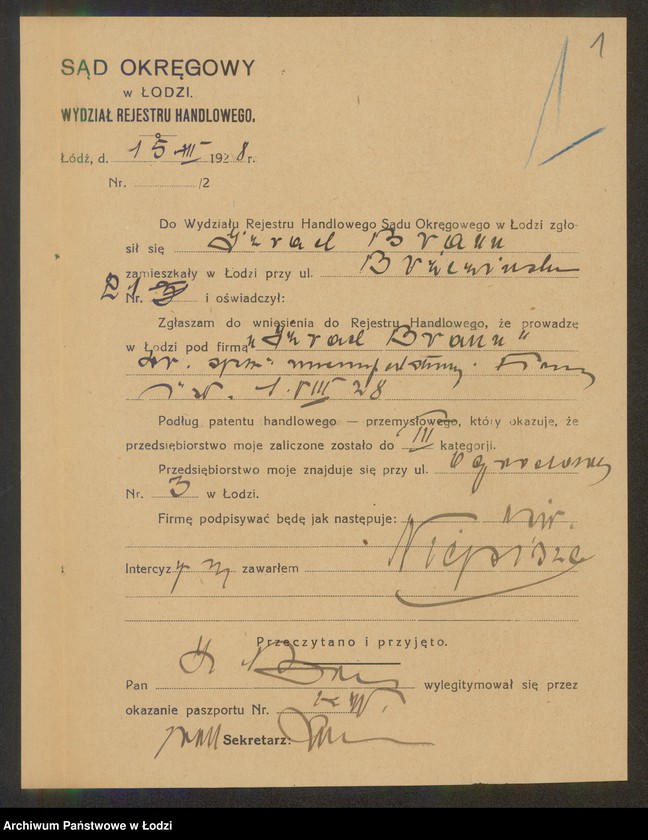 1
SĄD OKRĘGOWY
w ŁODZI.
WYDZIAŁ REJESTRU HANDLOWEGO.
Łódź, d. 15 VIII 1928 r.
Nr. /2
Do Wydziału Rejestru Handlowego Sądu Okręgowego w Łodzi zgło-
sił się Izrael Braun
zamieszkały w Łodzi przy ul. Brzezińska
Nr. 21 i oświadczył:
Zgłaszam do wniesienia do Rejestru Handlowego, że prowadzę
w Łodzi pod firmą „Izrael Braun"
1.VIII 28
Podług patentu handlowego — przemysłowego, który okazuje, że
przedsiębiorstwo moje zaliczone zostało do III kategorji.
Przedsiębiorstwo moje znajduje się przy ul. Ogrodowej
Nr. 3 w Łodzi.
Firmę podpisywać będę jak następuje:
Intercyzy zawarłem
Przeczytano i przyjęto.
Pan wylegitymował się przez
okazanie paszportu Nr.
Sekretarz:
Archiwum Państwowe w Łodzi